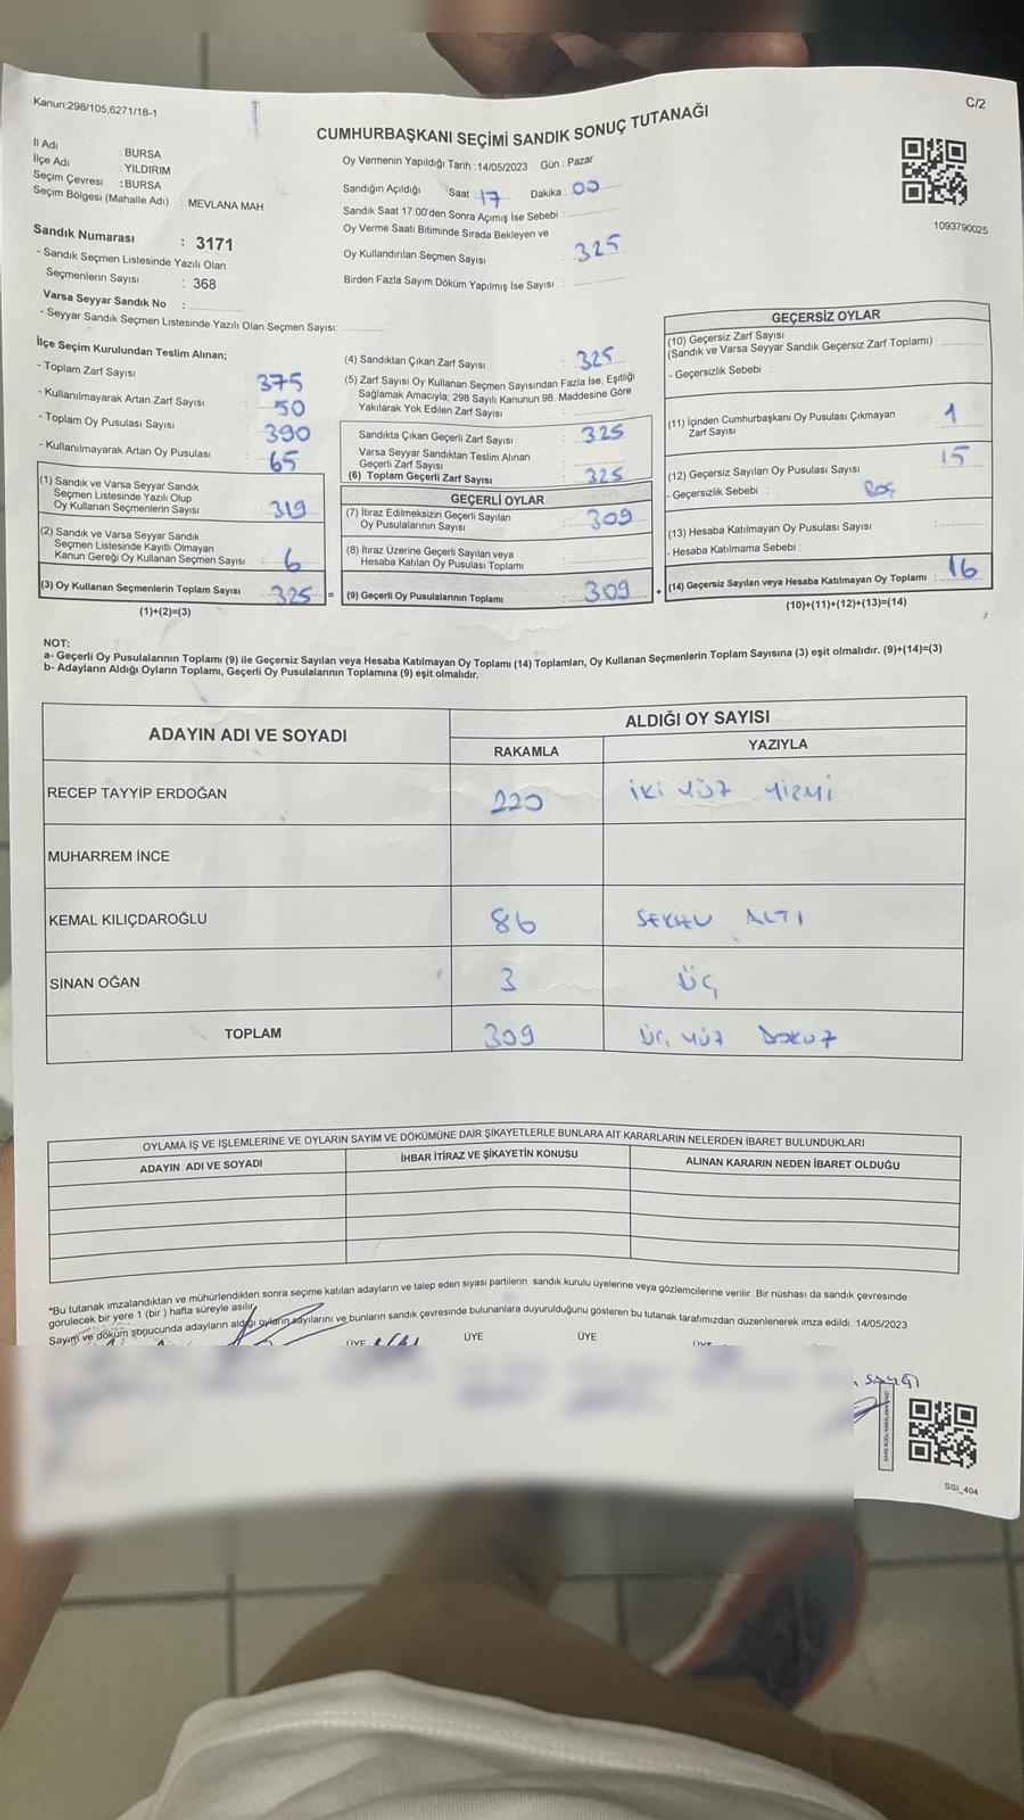 Kanun:298/105,6271/18-1
C/2
CUMHURBAŞKANI SEÇİMİ SANDIK SONUÇ TUTANAĞI
İl Adı : BURSA
İlçe Adı : YILDIRIM
Seçim Çevresi : BURSA
Seçim Bölgesi (Mahalle Adı) : MEVLANA MAH
Sandık Numarası : 3171
- Sandık Seçmen Listesinde Yazılı Olan
Seçmenlerin Sayısı : 368
Varsa Seyyar Sandık No :
- Seyyar Sandık Seçmen Listesinde Yazılı Olan Seçmen Sayısı:
Oy Vermenin Yapıldığı Tarih : 14/05/2023 Gün : Pazar
Sandığın Açıldığı Saat 17 Dakika : 00
Sandık Saat 17.00'den Sonra Açımış İse Sebebi :
Oy Verme Saati Bitiminde Sırada Bekleyen ve
Oy Kullandırılan Seçmen Sayısı : 325
Birden Fazla Sayım Döküm Yapılmış İse Sayısı :
1093790025
İlçe Seçim Kurulundan Teslim Alınan;
- Toplam Zarf Sayısı 375
- Kullanılmayarak Artan Zarf Sayısı 50
- Toplam Oy Pusulası Sayısı 390
- Kullanılmayarak Artan Oy Pusulası 65
(1) Sandık ve Varsa Seyyar Sandık
Seçmen Listesinde Yazılı Olup
Oy Kullanan Seçmenlerin Sayısı : 319
(2) Sandık ve Varsa Seyyar Sandık
Seçmen Listesinde Kayıtlı Olmayan
Kanun Gereği Oy Kullanan Seçmen Sayısı : 6
(3) Oy Kullanan Seçmenlerin Toplam Sayısı 325 =
(1)+(2)=(3)
(4) Sandıktan Çıkan Zarf Sayısı : 325
(5) Zarf Sayısı Oy Kullanan Seçmen Sayısından Fazla İse, Eşitliği
Sağlamak Amacıyla, 298 Sayılı Kanunun 98. Maddesine Göre
Yakılarak Yok Edilen Zarf Sayısı :
Sandıkta Çıkan Geçerli Zarf Sayısı : 325
Varsa Seyyar Sandıktan Teslim Alınan
Geçerli Zarf Sayısı :
(6) Toplam Geçerli Zarf Sayısı : 325
GEÇERLİ OYLAR
(7) İtiraz Edilmeksizin Geçerli Sayılan
Oy Pusulalarının Sayısı : 309
(8) İtiraz Üzerine Geçerli Sayılan veya
Hesaba Katılan Oy Pusulası Toplamı :
(9) Geçerli Oy Pusulalarının Toplamı : 309 +
GEÇERSİZ OYLAR
(10) Geçersiz Zarf Sayısı
(Sandık ve Varsa Seyyar Sandık Geçersiz Zarf Toplamı) :
- Geçersizlik Sebebi :
(11) İçinden Cumhurbaşkanı Oy Pusulası Çıkmayan
Zarf Sayısı : 1
(12) Geçersiz Sayılan Oy Pusulası Sayısı : 15
- Geçersizlik Sebebi : Boş
(13) Hesaba Katılmayan Oy Pusulası Sayısı :
- Hesaba Katılmama Sebebi :
(14) Geçersiz Sayılan veya Hesaba Katılmayan Oy Toplamı : 16
(10)+(11)+(12)+(13)=(14)
NOT:
a- Geçerli Oy Pusulalarının Toplamı (9) ile Geçersiz Sayılan veya Hesaba Katılmayan Oy Toplamı (14) Toplamları, Oy Kullanan Seçmenlerin Toplam Sayısına (3) eşit olmalıdır. (9)+(14)=(3)
b- Adayların Aldığı Oyların Toplamı, Geçerli Oy Pusulalarının Toplamına (9) eşit olmalıdır.
ADAYIN ADI VE SOYADI
ALDIĞI OY SAYISI
RAKAMLA YAZIYLA
RECEP TAYYİP ERDOĞAN 220 İKİ YÜZ YİRMİ
MUHARREM İNCE
KEMAL KILIÇDAROĞLU 86 ALTI
SİNAN OĞAN 3 ÜÇ
TOPLAM 309 ÜÇ YÜZ DOKUZ
OYLAMA İŞ VE İŞLEMLERİNE VE OYLARIN SAYIM VE DÖKÜMÜNE DAİR ŞİKAYETLERLE BUNLARA AİT KARARLARIN NELERDEN İBARET BULUNDUKLARI
ADAYIN ADI VE SOYADI İHBAR İTİRAZ VE ŞİKAYETİN KONUSU ALINAN KARARIN NEDEN İBARET OLDUĞU
*Bu tutanak imzalandıktan ve mühürlendikten sonra seçime katılan adayların ve talep eden siyasi partilerin sandık kurulu üyelerine veya gözlemcilerine verilir. Bir nüshası da sandık çevresinde
görülecek bir yere 1 (bir) hafta süreyle asılır.
Sayım ve döküm sonucunda adayların aldığı oyların sayılarını ve bunların sandık çevresinde bulunanlara duyurulduğunu gösteren bu tutanak tarafımızdan düzenlenerek imza edildi. 14/05/2023
ÜYE ÜYE ÜYE
SGI_404